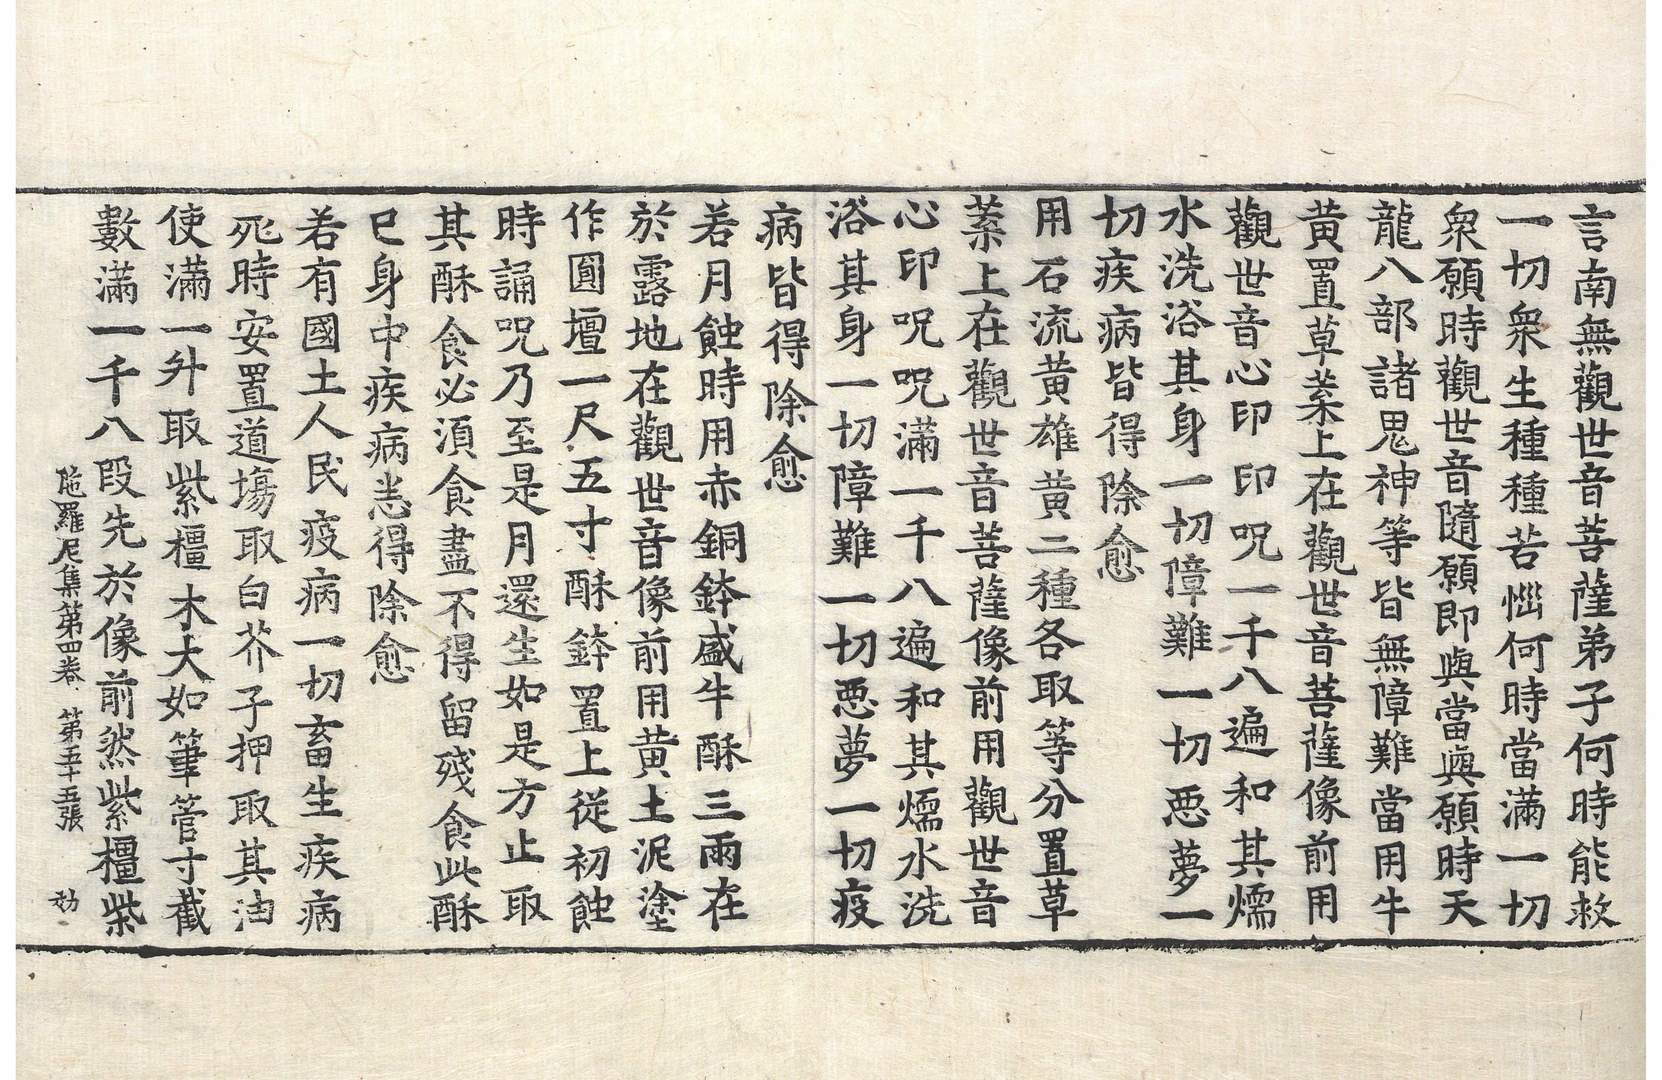 言南無觀世音菩薩弟子何時能救
一切衆生種種苦惱何時當滿一切
衆願時觀世音隨願即與當與願時天
龍八部諸鬼神等皆無障難當用牛
黃置草葉上在觀世音菩薩像前用
觀世音心印印呪一千八遍和其煗
水洗浴其身一切障難一切惡夢一
切疾病皆得除愈
用石流黃雄黃二種各取等分置草
葉上在觀世音菩薩像前用觀世音
心印呪呪滿一千八遍和其煗水洗
浴其身一切障難一切惡夢一切疫
病皆得除愈
若月蝕時用赤銅鉢盛牛酥三兩在
於露地在觀世音像前用黃土泥塗
作圓壇一尺五寸酥鉢置上從初蝕
時誦呪乃至是月還生如是方止取
其酥食必湏食盡不得留殘食此酥
已身中疾病悉得除愈
若有國土人民疫病一切畜生疾病
死時安置道塲取白芥子押取其油
使滿一升取紫橿木大如筆管寸截
數滿一千八段先於像前然紫橿柴
陁羅尼集第四卷 第五十五張 劝